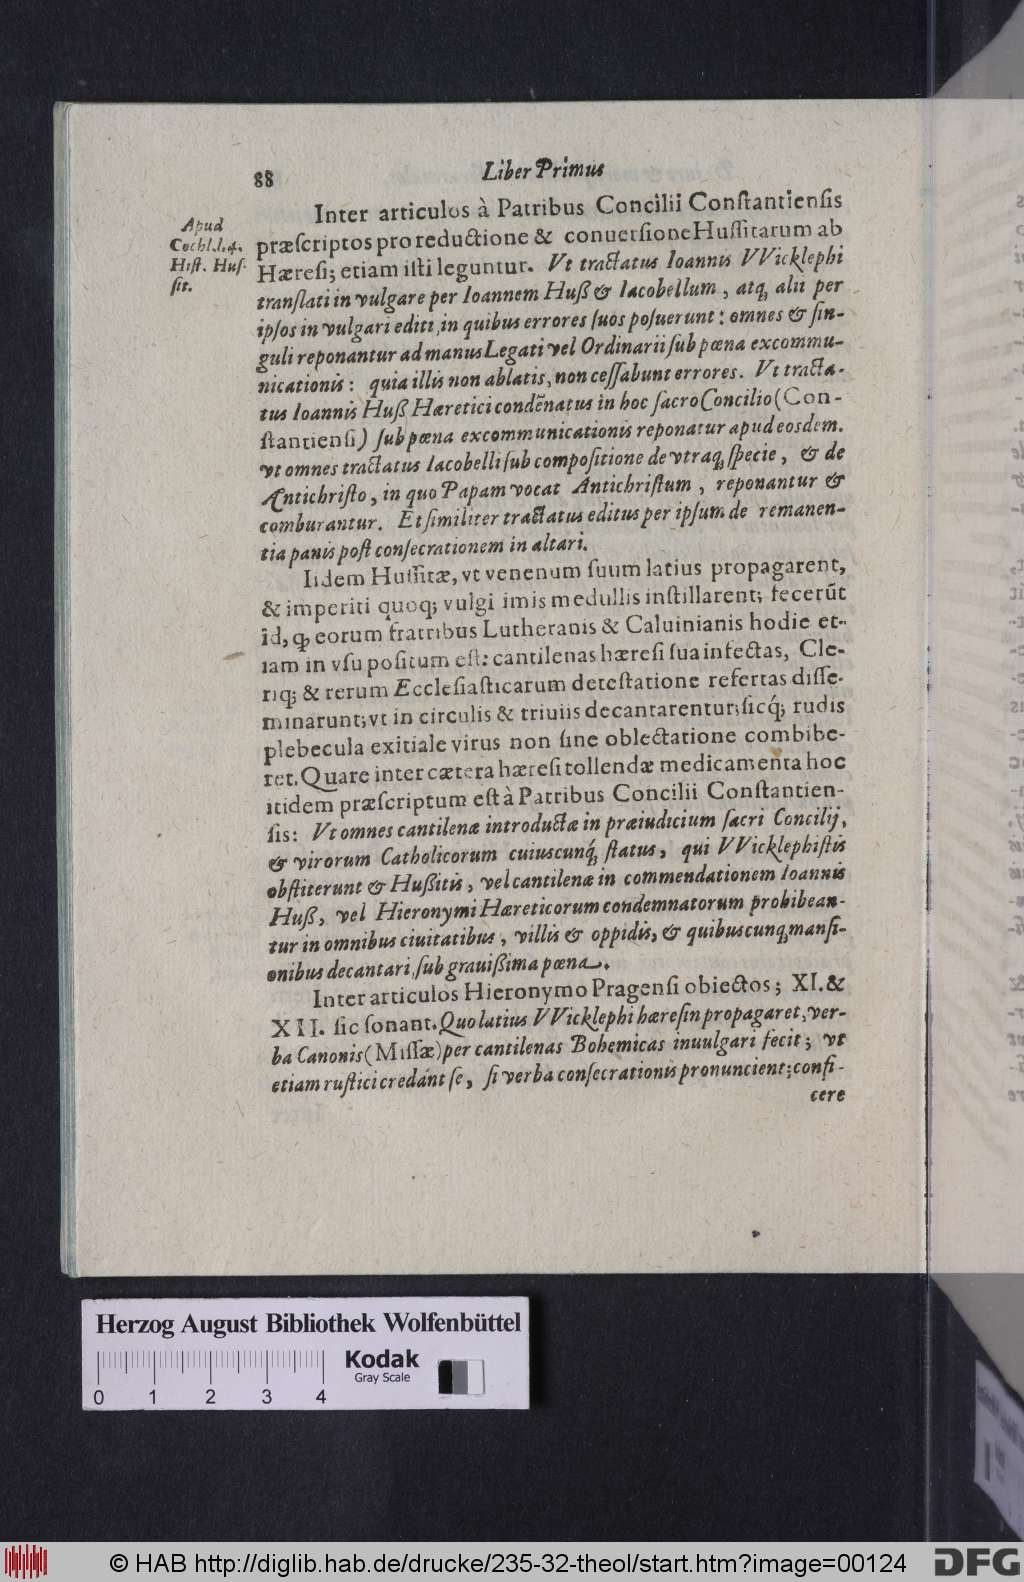 88
Liber Primus
Apud
Cochl.l.4.
Hist. Hus-
sit.
Inter articulos à Patribus Concilii Constantiensis
præscriptos pro reductione & conuersione Hussitarum ab
Hæresi; etiam isti leguntur. Vt tractatus Ioannis VVicklephi
translati in vulgare per Ioannem Huß & Iacobellum, atq; alii per
ipsos in vulgari editi, in quibus errores suos posuerunt: omnes & sin-
guli reponantur ad manus Legati vel Ordinarii sub pœna excommu-
nicationis: quia illis non ablatis, non cessabunt errores. Vt tracta-
tus Ioannis Huß Hæretici condẽnatus in hoc sacro Concilio (Con-
stantiensi) sub pœna excommunicationis reponatur apud eosdem.
vt omnes tractatus Iacobelli sub compositione de vtraq; specie, & de
Antichristo, in quo Papam vocat Antichristum, reponantur &
comburantur. Et similiter tractatus editus per ipsum de remanen-
tia panis post consecrationem in altari.
Iidem Hussitæ, vt venenum suum latius propagarent,
& imperiti quoq; vulgi imis medullis instillarent; fecerũt
id, q; eorum fratribus Lutheranis & Caluinianis hodie et-
iam in vsu positum est: cantilenas hæresi sua infectas, Cle-
riq; & rerum Ecclesiasticarum detestatione refertas disse-
minarunt; vt in circulis & triuiis decantarentur; sicq́; rudis
plebecula exitiale virus non sine oblectatione combibe-
ret. Quare inter cætera hæresi tollendæ medicamenta hoc
itidem præscriptum est à Patribus Concilii Constantien-
sis: Vt omnes cantilenæ introductæ in præiudicium sacri Concilij,
& virorum Catholicorum cuiuscunq́; status, qui VVicklephistis
obstiterunt & Hußitis, vel cantilenæ in commendationem Ioannis
Huß, vel Hieronymi Hæreticorum condemnatorum prohibean-
tur in omnibus ciuitatibus, villis & oppidis, & quibuscunq; mansi-
onibus decantari, sub grauißima pœna.
Inter articulos Hieronymo Pragensi obiectos; XI. &
XII. sic sonant. Quo latius VVicklephi hæresin propagaret, ver-
ba Canonis (Missæ) per cantilenas Bohemicas inuulgari fecit; vt
etiam rustici credant se, si verba consecrationis pronuncient; confi-
cere
Herzog August Bibliothek Wolfenbüttel
Kodak
Gray Scale
0 1 2 3 4
© HAB http://diglib.hab.de/drucke/235-32-theol/start.htm?image=00124
DFG